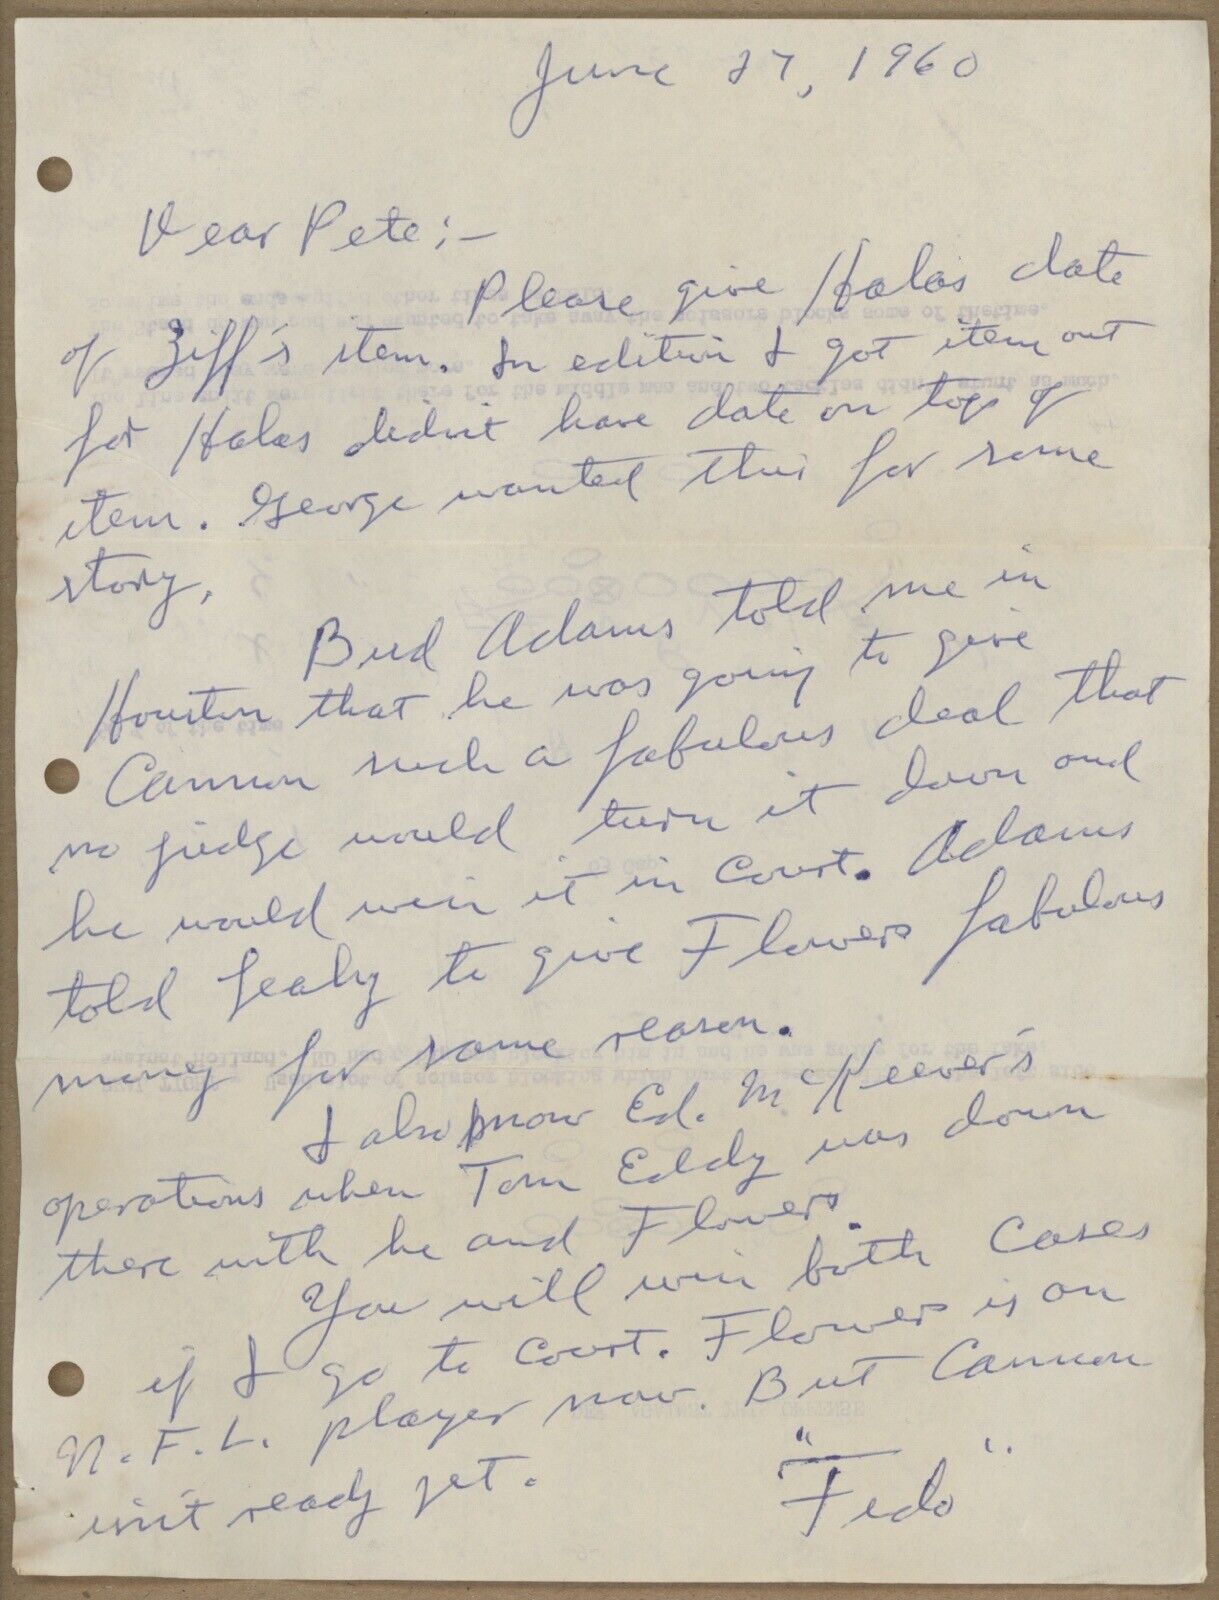 June 27, 1960
Dear Pete:-
Please give Halas date
of Ziff's item. In edition I got item out
for Halas didn't have date on top of
item. George wanted this for some
story.
Bud Adams told me in
Houston that he was going to give
Cannon such a fabulous deal that
no judge would turn it down and
he would win it in court. Adams
told Leahy to give Flowers fabulous
money for some reason.
I also know Ed. McKeever's
operations when Tom Eddy was down
there with he and Flowers.
You will win both cases
if I go to court. Flowers is an
N.F.L. player now. But Cannon
isn't ready yet.
"Fido".